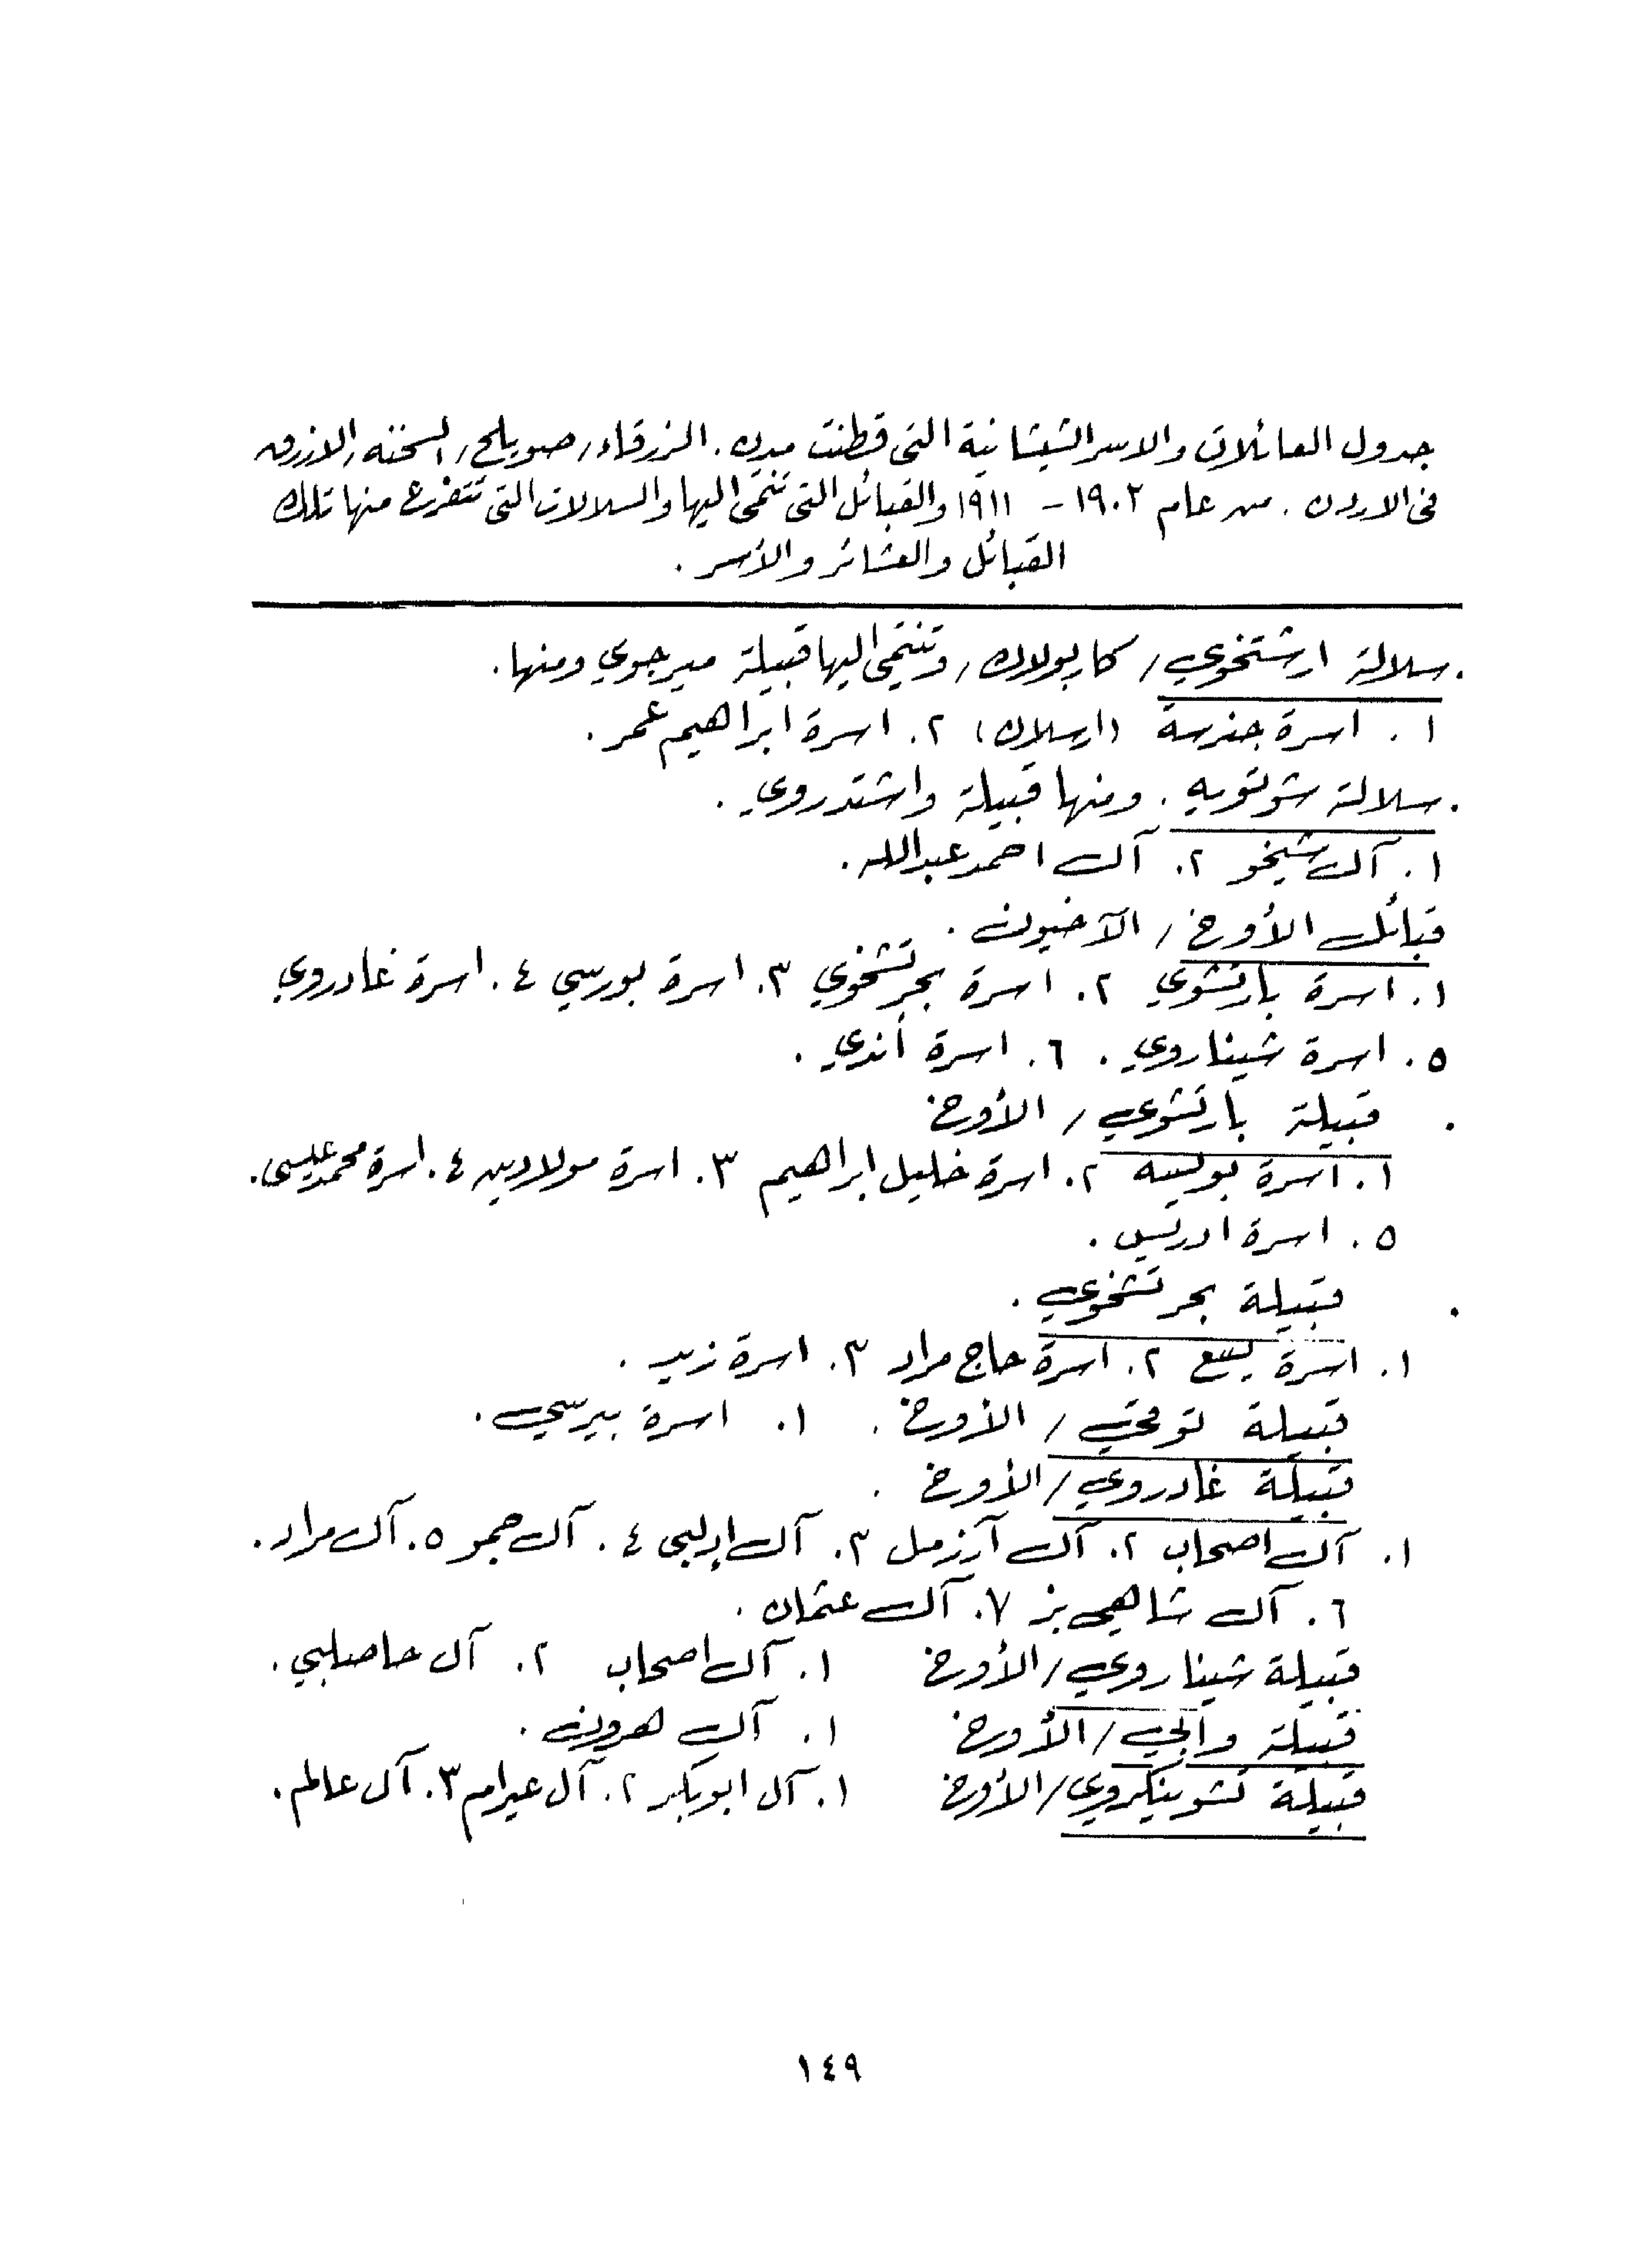 جدول العائلات والاسر الشيشانية التى قطنت مدن. الزرقاء/ صويلح/ السخنه/ الازرق
فى الاردن. من عام ١٩٠٢ - ١٩١١ والقبائل التى تنتمى اليها والسلالات التى تتفرع منها تلك
القبائل والعشائر والأسر.
. سلالة ارشتخوي/ كاربولاك/ وتنتمى اليها قبيلة ميرجوي ومنها.
١. اسرة جنرسة (ارسلان) ٢. اسرة ابراهيم عمر.
. سلالة شوتويه. ومنها قبيلة واشتدروي.
١. آل شيخو ٢. آل احمد عبدالله.
قبائل الأورخ/ الآخيون.
١. اسرة بارتشوي ٢. اسرة بجرتشخوي ٣. اسرة بورسي ٤. اسرة غادروي
٥. اسرة شيناروي. ٦. اسرة أندي.
. قبيلة بارتشوي/ الأورخ
١. اسرة ٢. اسرة خليل ابراهيم ٣. اسرة مولادين ٤. اسرة محمد عيسى.
٥. اسرة ادريس.
. قبيلة بجرتشخوي.
١. اسرة ٢. اسرة حاج مراد ٣. اسرة زيد.
قبيلة / الأورخ. ١. اسرة بيرسي.
قبيلة غادروي/ الأورخ.
١. آل اصحاب ٢. آل آرزمل ٣. آل ٤. آل حمو ٥. آل مراد.
٦. آل شاهين بز ٧. آل عثمان.
قبيلة شيناروي/ الأورخ ١. آل اصحاب ٢. آل حاصلبي.
قبيلة والجي/ الأورخ ١. آل هرون.
قبيلة تشوينكروي/ الأورخ ١. آل ابوبكر ٢. آل عيرام ٣. آل عالم.
١٤٩